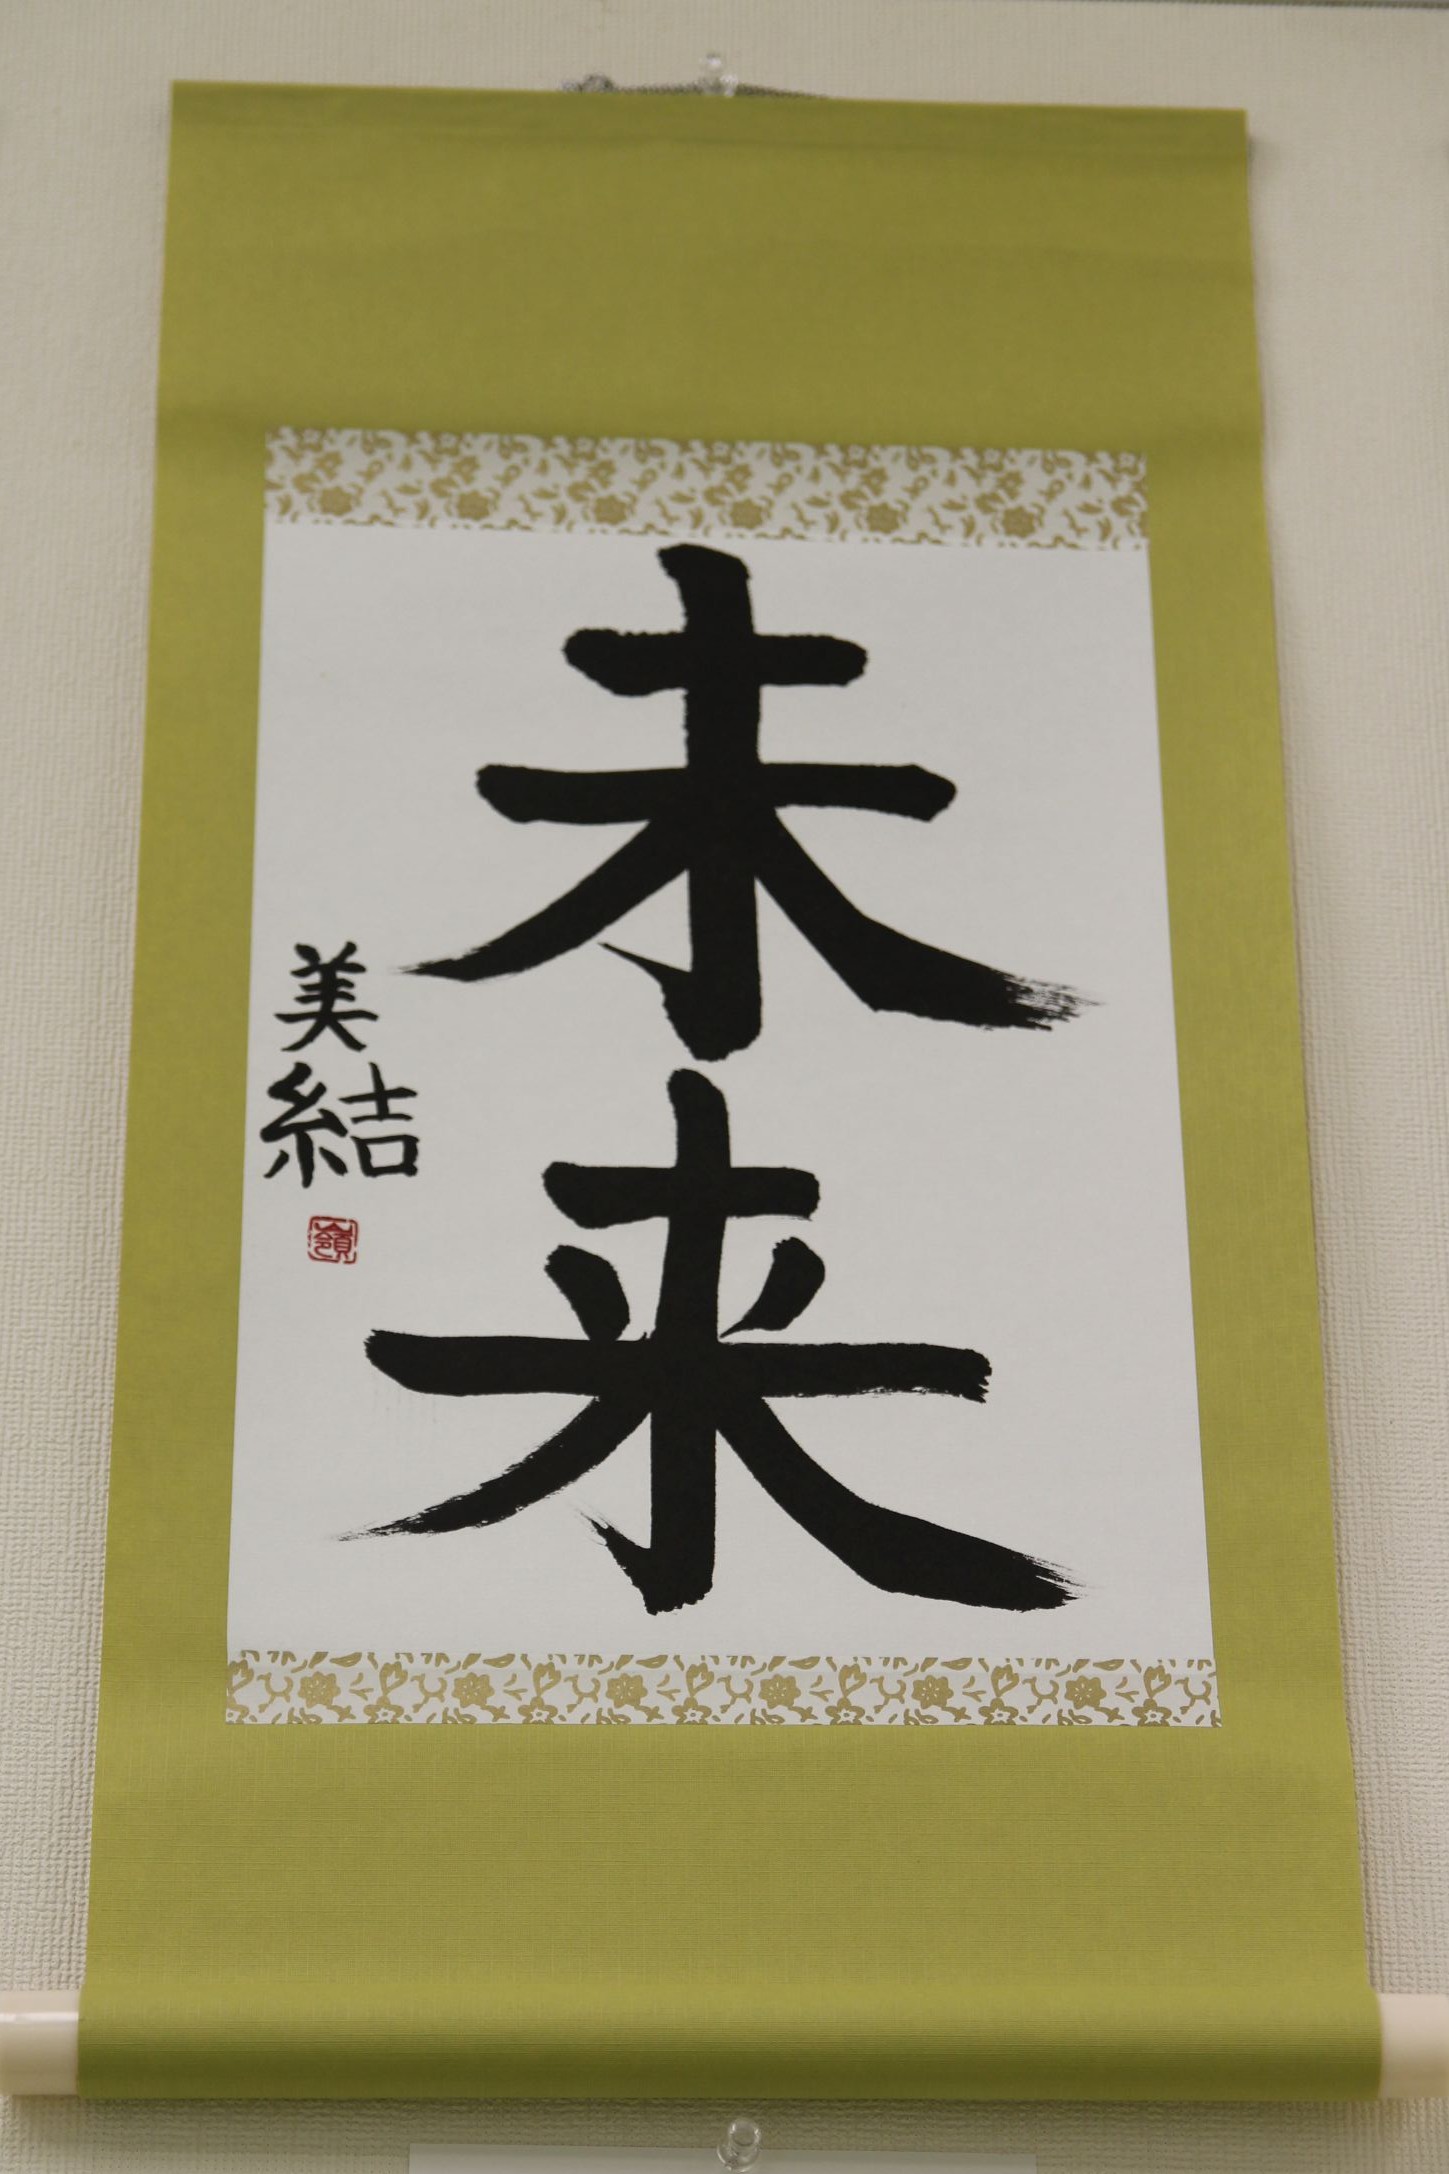 未来
美結
嶺